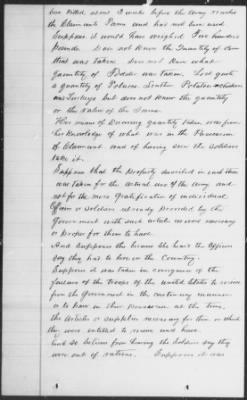 was killed some 2 week before the army reached
the Claimants Farm and had not been used
Suppose it would have weighed Five hundred
pounds. Does not know the Quantity of Corn
that was taken. Does not know what
quantity of Fodder was taken. Lost quite
a quantity of Potatoes Sweet Potatoes Chickens
and Turkeys but does not know the quantity
or the value of the same.
Her means of knowing quantity taken was from
her knowledge of what was in the Possession
of Claimant and of having seen the soldiers
take it.
Suppose that the property described in each item
was taken for the actual use of the army and
not for the mere gratification of individual
officers or soldiers already provided by the
Government with such articles as were necessary
or proper for them to have
And supposes the because She heard the officers
say they has to live on the Country.
Suppose it was taken in consequence of the
failure of the troops of the United States to receive
from the Government in the customary manner
or to have in their possession at the time,
the articles or supplies necessary for them or which
they were entitled to receive and have.
And so believes from hearing the soldiers say they
were out of rations. Supposes it was